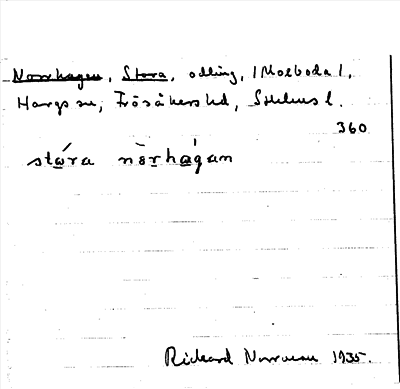 Norrhagen, Stora, odling, (Moeboda),
Hargs sn, Frösåkers hd, Sthlms l.
360
stóra nòrhágan
Rickard Norrman 1935.